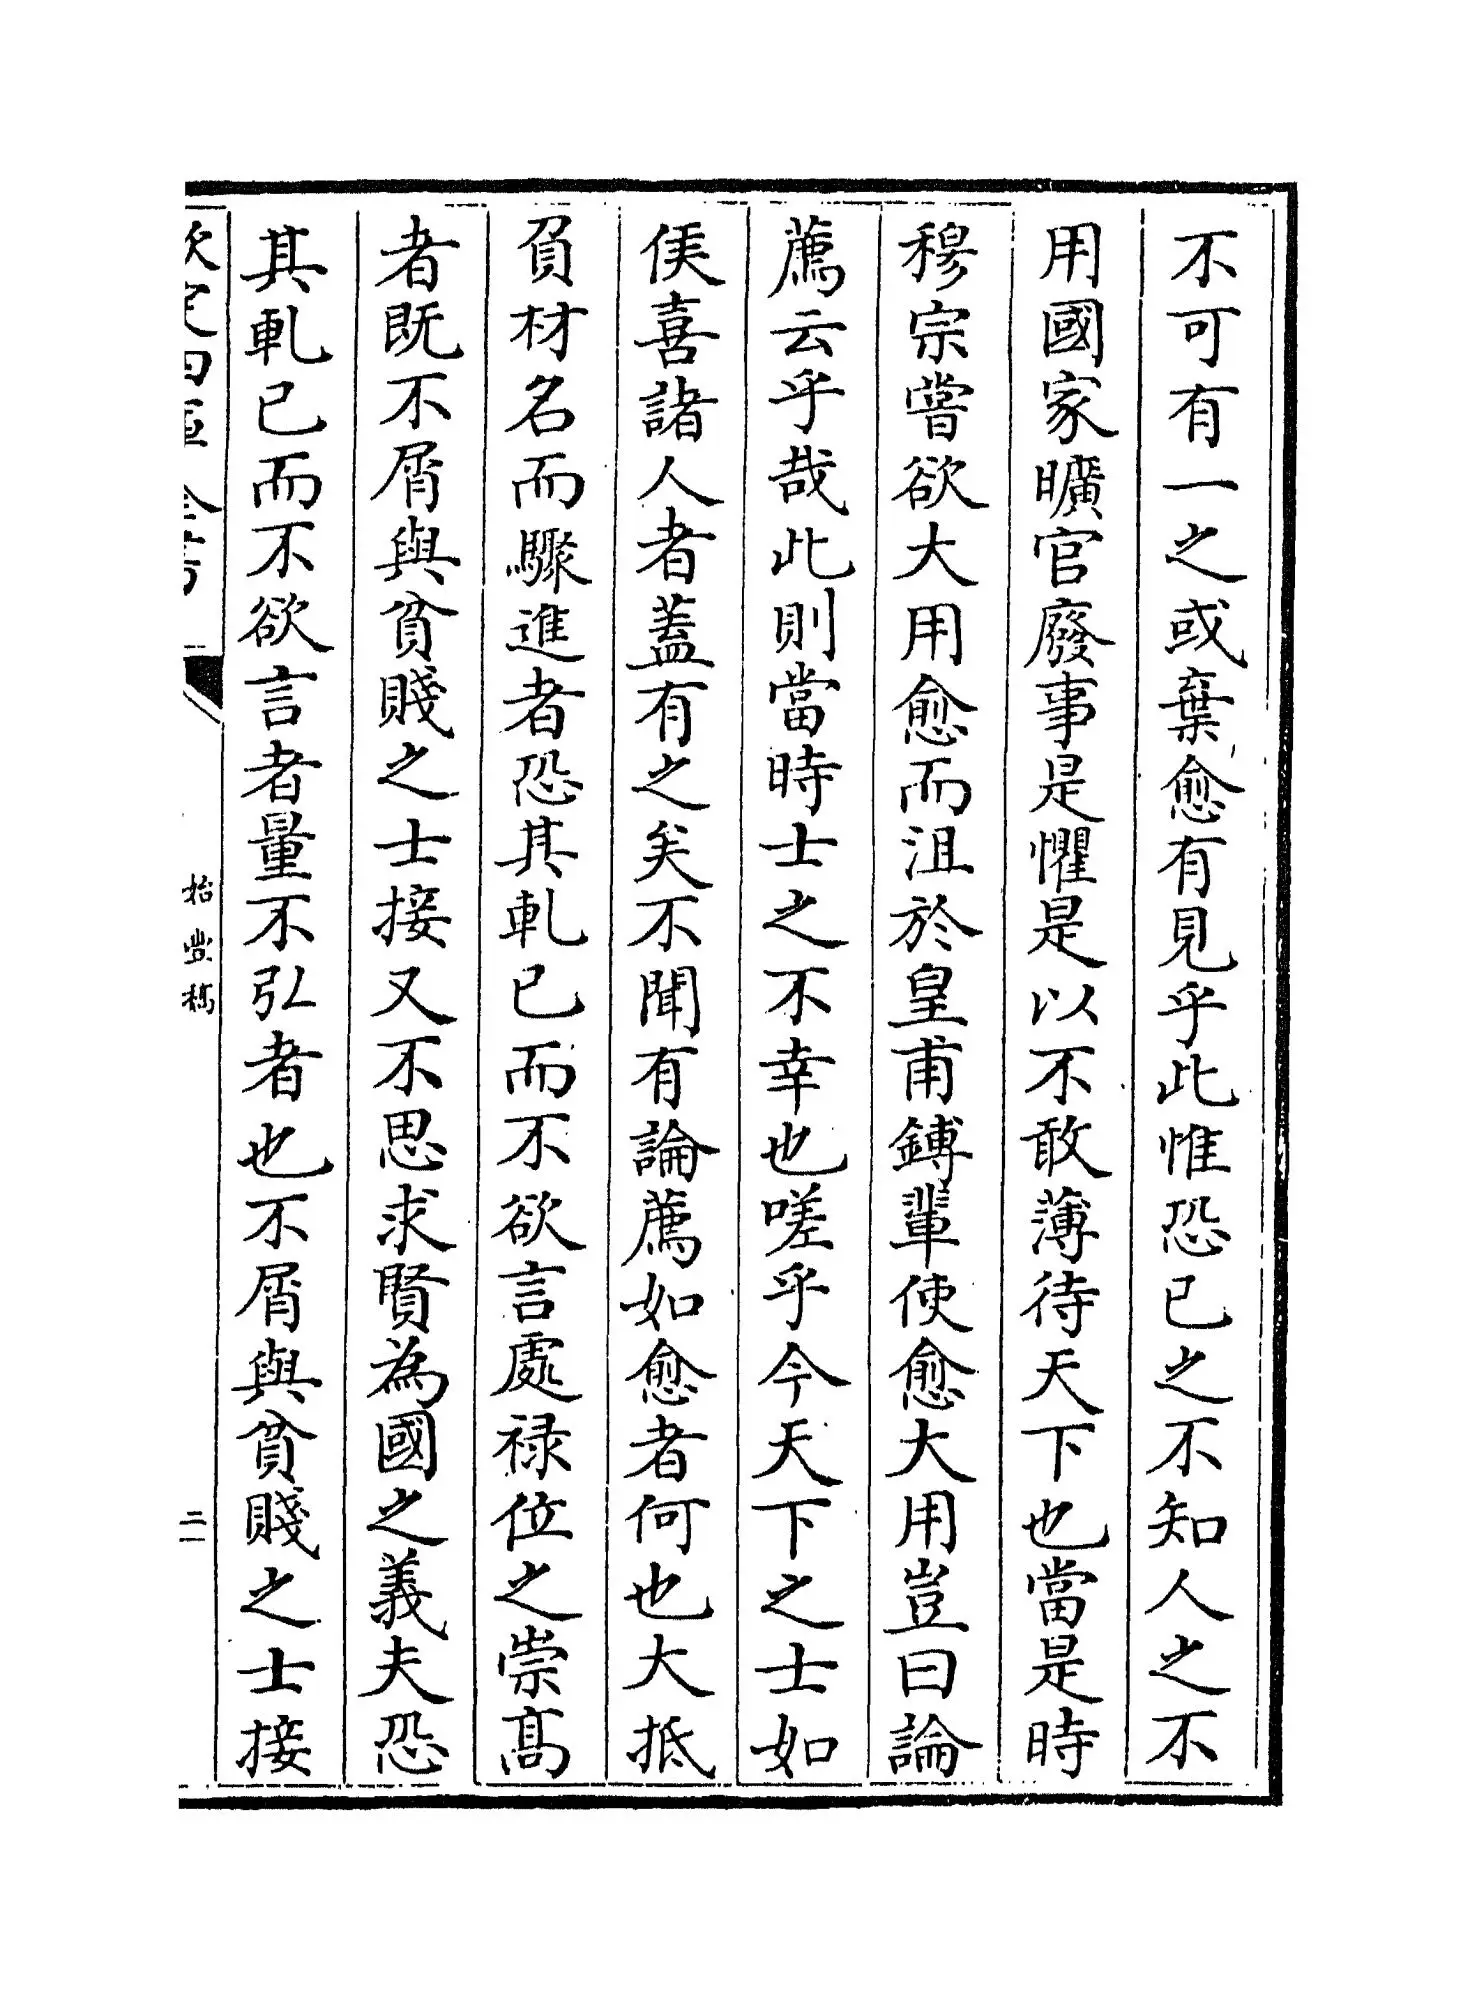 不可有一之或棄愈有見乎此惟恐已之不知人之不
用國家曠官廢事是懼是以不敢薄待天下也當是時
穆宗嘗欲大用愈而沮於皇甫鎛輩使愈大用豈曰論
薦云乎哉此則當時士之不幸也嗟乎今天下之士如
侯喜諸人者蓋有之矣不聞有論薦如愈者何也大抵
負材名而驟進者恐其軋已而不欲言處禄位之崇髙
者既不屑與貧賤之士接又不思求賢為國之義夫恐
其軋已而不欲言者量不弘者也不屑與貧賤之士接
欽定四庫全書
始豐稿
二一